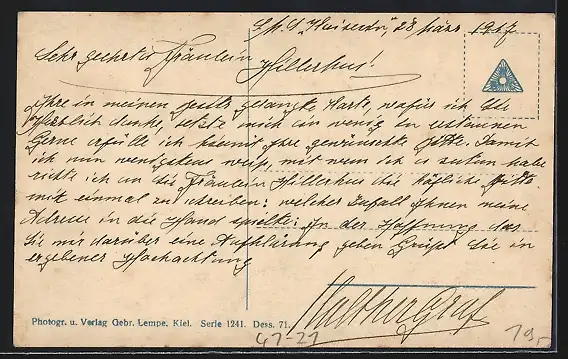 S.M.S. "Kaiserin", 28 März 1917
Sehr geehrtes Fräulein Hillerhus!
Ihre in meinen Besitz gelangte Karte, wofür ich Sie
Herzlich danke, setzte mich ein wenig in erstaunen
Gerne erfülle ich hiermit Ihre gewünschte Bitte. Damit
ich nun wenigstens weiß, mit wem ich es zutun habe
richte ich an die Fräulein Hillerhus die höfliche Bitte
mir einmal zu schreiben: welcher Zufall Ihnen meine
Adresse in die Hand spielte: In der Hoffnung das
Sie mir darüber eine Aufklärung geben Grüßt Sie in
ergebener Hochachtung
Walther Graf
Photogr. u. Verlag Gebr. Lempe, Kiel. Serie 1241. Dess. 71.
47-21
19,-